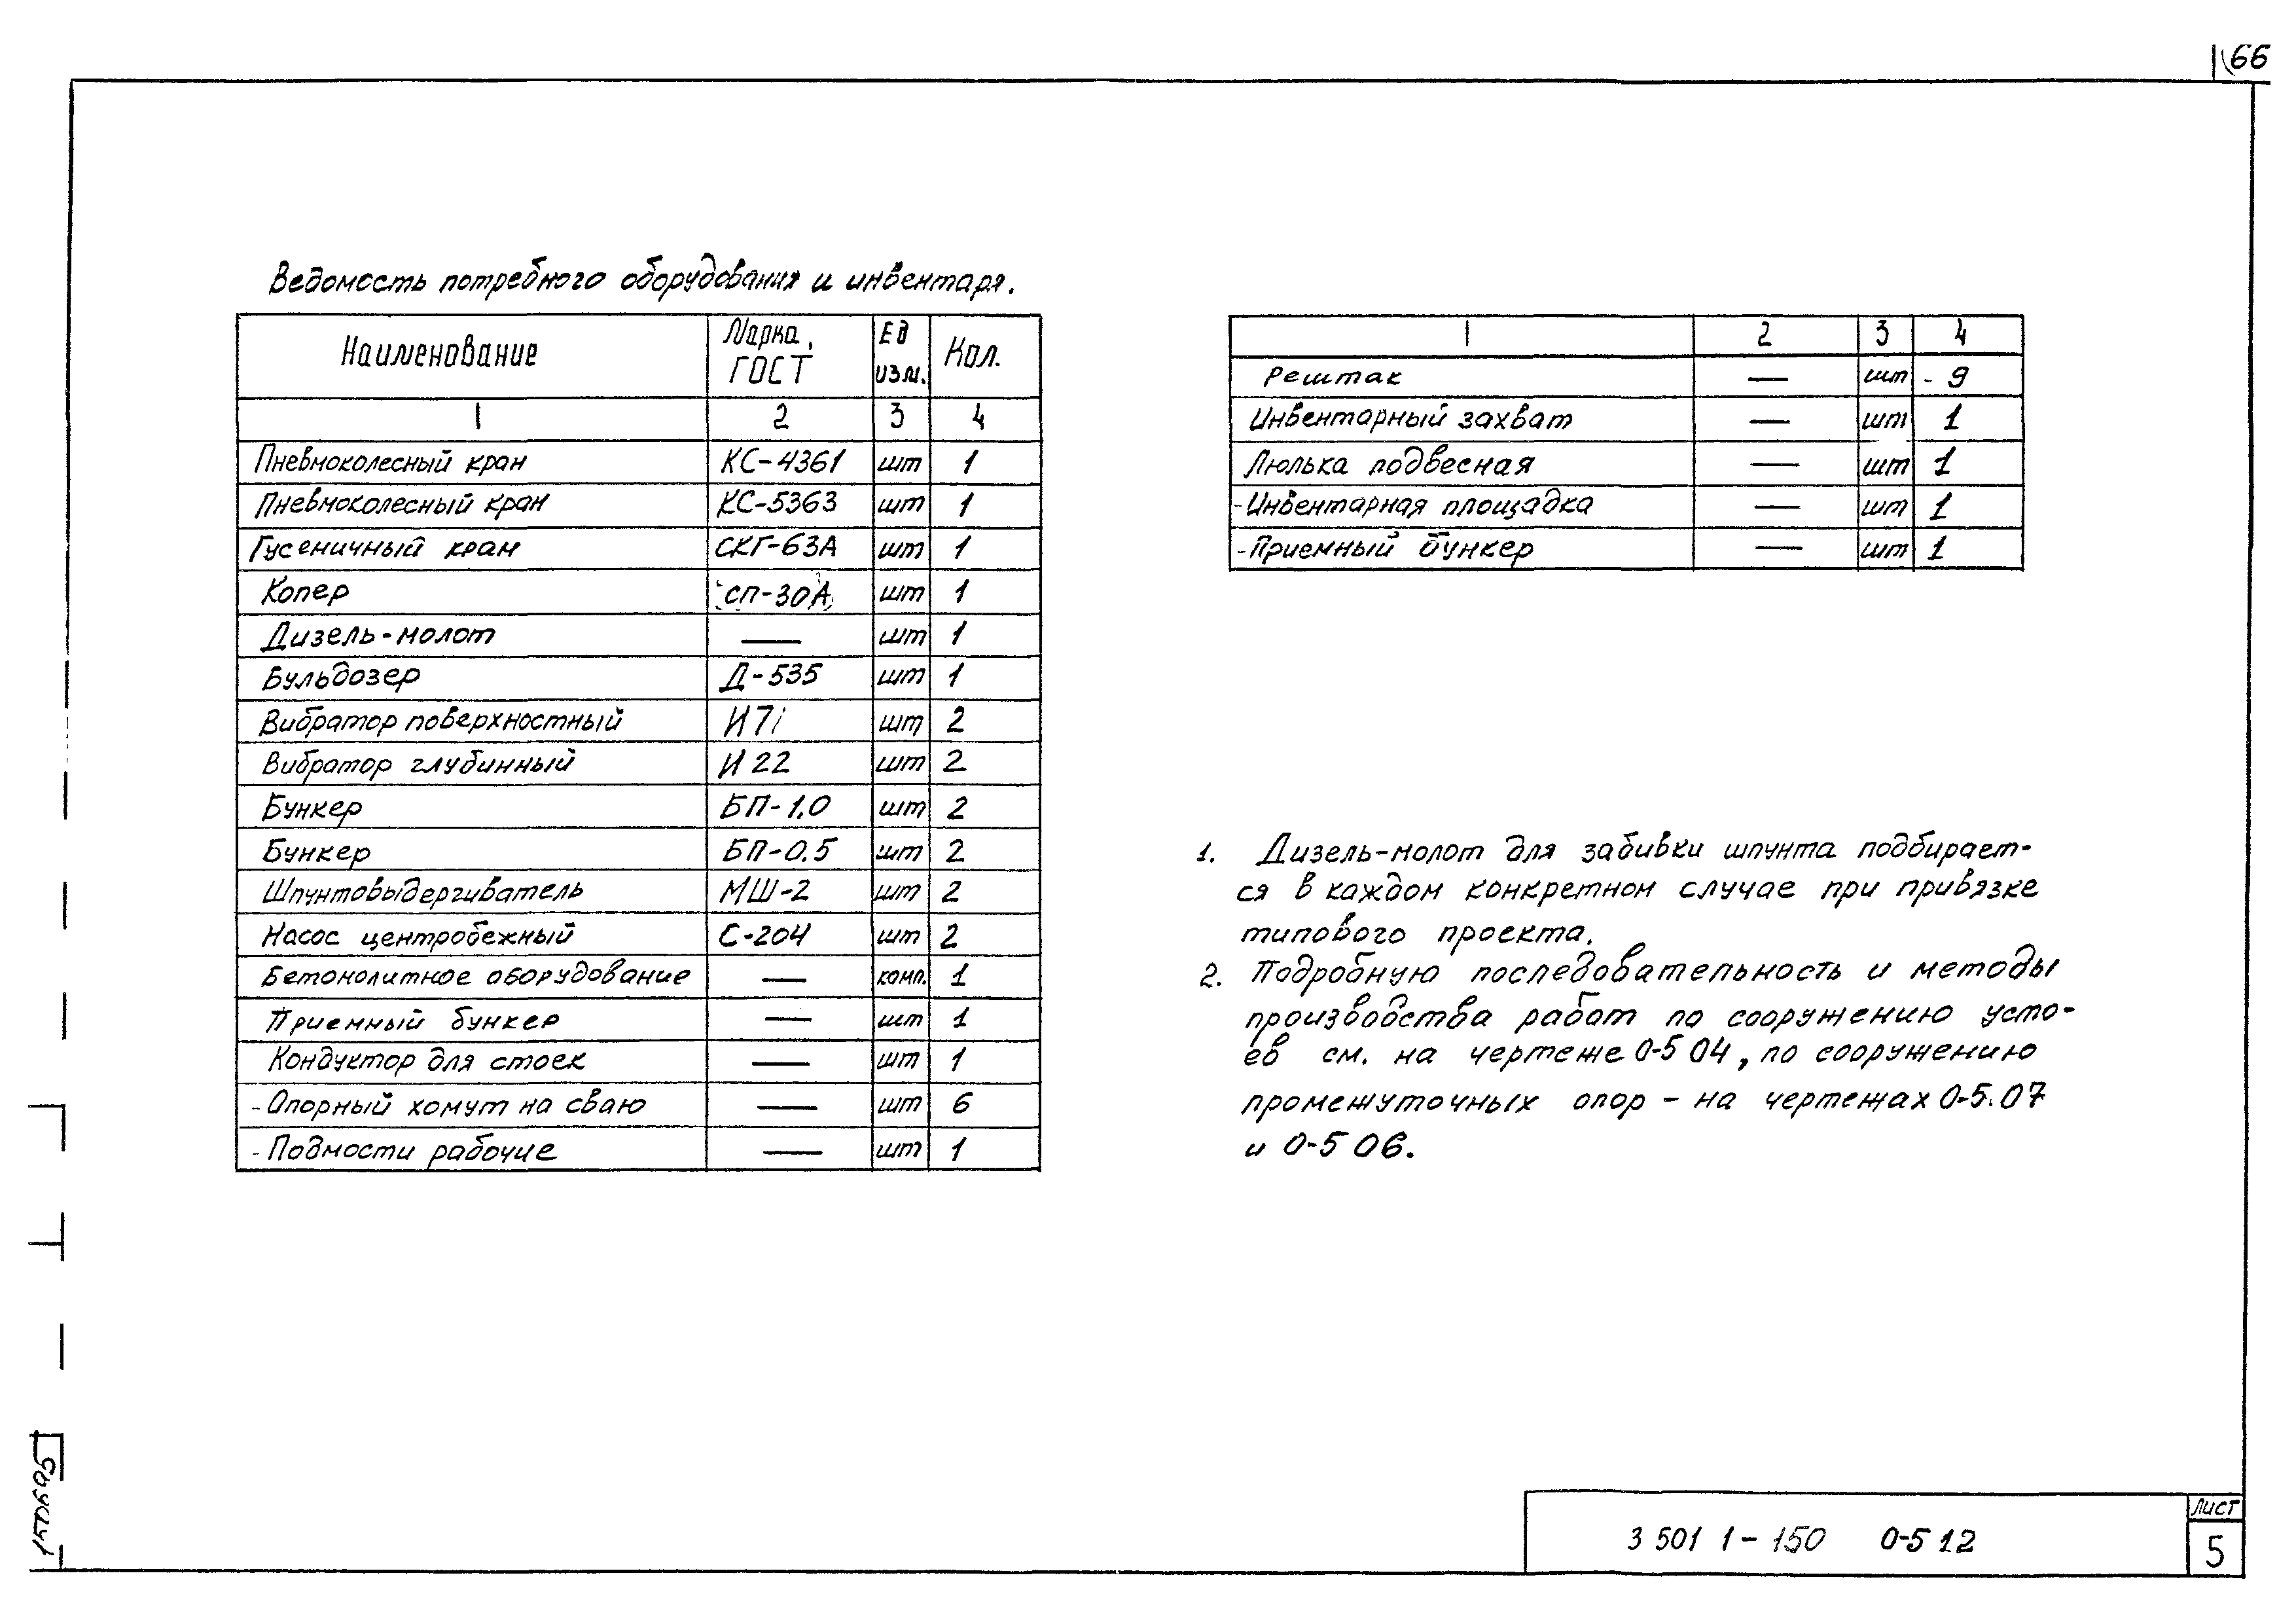 66
Ведомость потребного оборудования и инвентаря.
Наименование Марка, ГОСТ Ед изм. Кол.
1 2 3 4
Пневмоколесный кран КС-4361 шт 1
Пневмоколесный кран КС-5363 шт 1
Гусеничный кран СКГ-63А шт 1
Копер СП-30А шт 1
Дизель-молот — шт 1
Бульдозер Д-535 шт 1
Вибратор поверхностный И 7i шт 2
Вибратор глубинный И 22 шт 2
Бункер БП-1,0 шт 2
Бункер БП-0,5 шт 2
Шпунтовыдергиватель МШ-2 шт 2
Насос центробежный С-204 шт 2
Бетонолитное оборудование — комп. 1
Приемный бункер — шт 1
Кондуктор для стоек — шт 1
- Опорный хомут на сваю — шт 6
- Подмости рабочие — шт 1
1 2 3 4
Рештак — шт - 9
Инвентарный захват — шт 1
Люлька подвесная — шт 1
- Инвентарная площадка — шт 1
- Приемный бункер — шт 1
1. Дизель-молот для забивки шпунта подбирает-
ся в каждом конкретном случае при привязке
типового проекта.
2. Подробную последовательность и методы
производства работ по сооружению усто-
ев см. на чертеже 0-5 04, по сооружению
промежуточных опор - на чертежах 0-5.07
и 0-5 06.
3 501 1-150 0-5 12
Лист
5